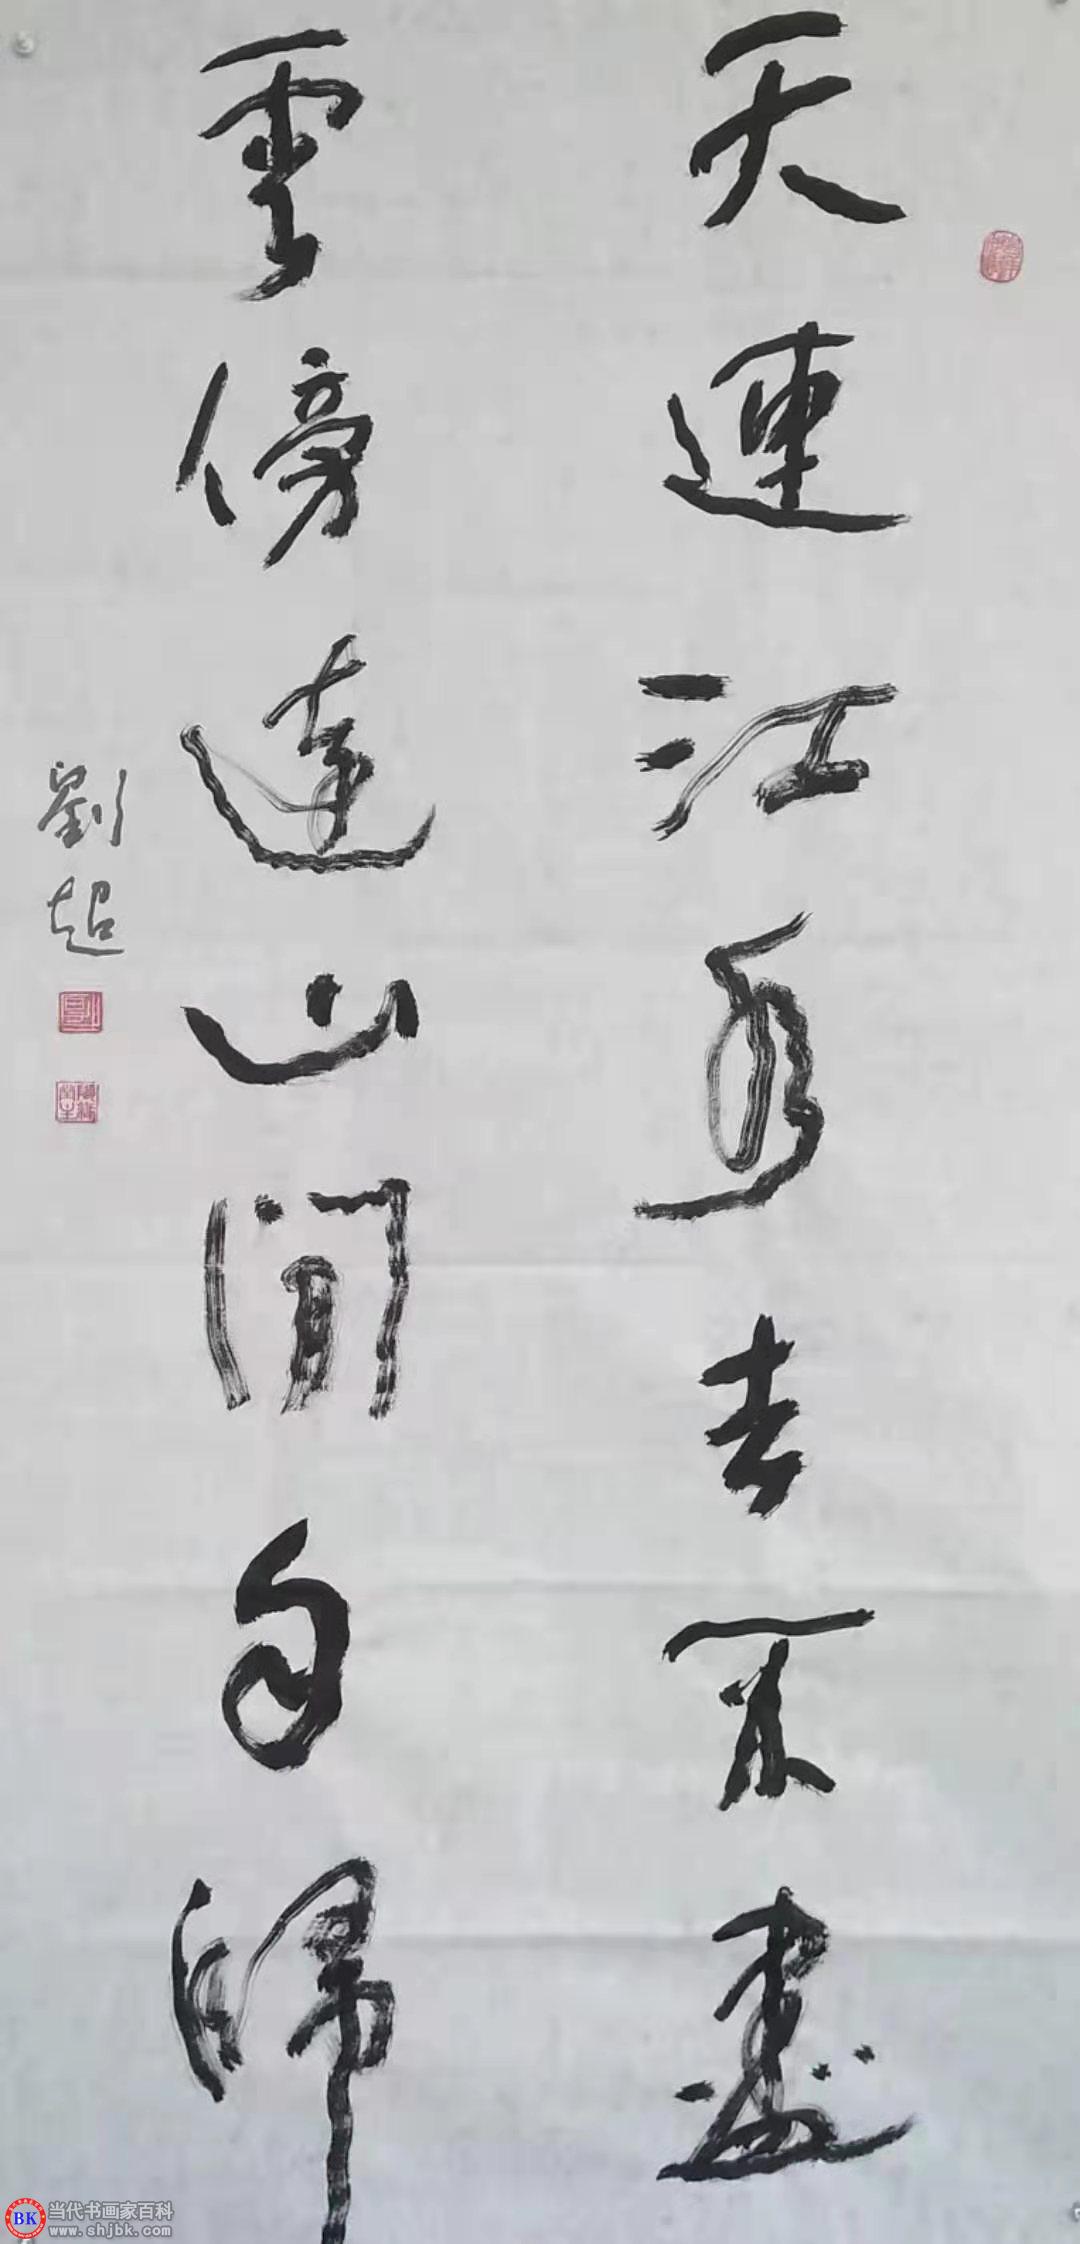 天連江水去不盡
雲傍遠山閒自歸
劉超
BK 当代书画家百科
www.shjbk.com